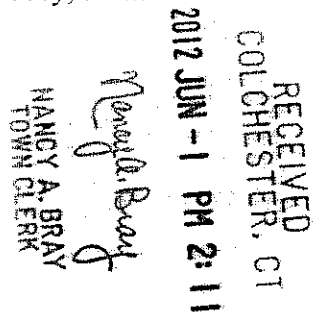 RECEIVED
COLCHESTER, CT
2012 JUN -1 PM 2: 11
Nancy A. Bray
NANCY A. BRAY
TOWN CLERK